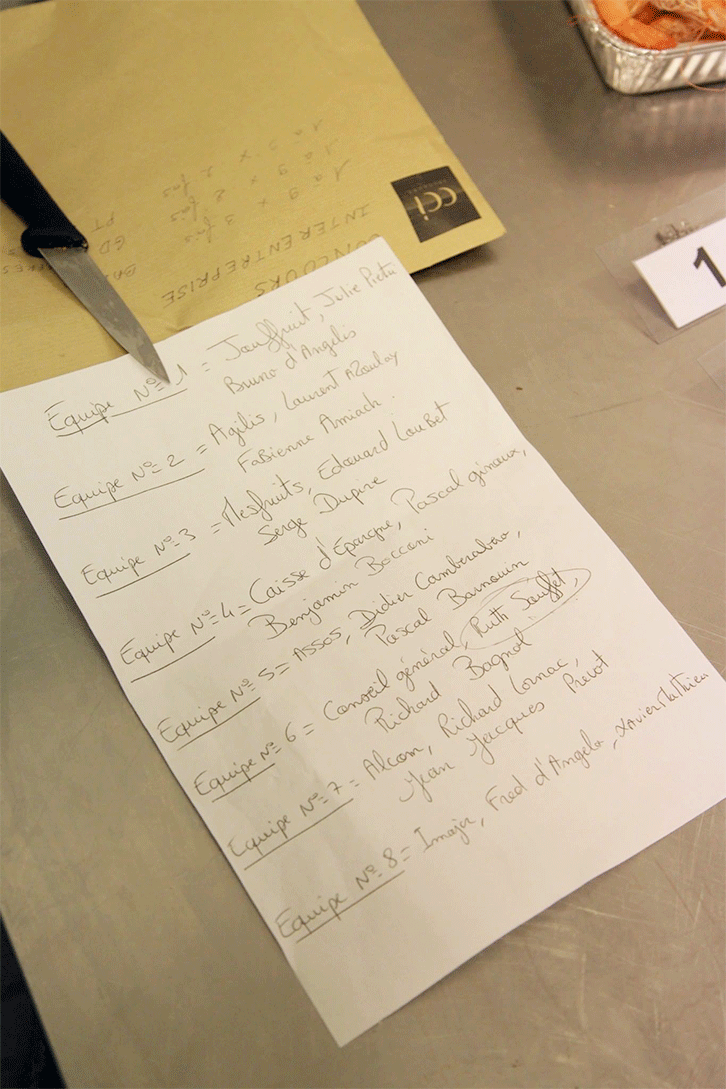 cci
VAUCLUSE
CONCOURS
INTERENTREPRISE
1 à 9 x 3 fois
1 à 9 x 2 fois
1 à 9 x 2 fois
GD
PT
1
Equipe N° 1 = Jouffruit, Julie Pieta
Bruno d'Angelis
Equipe N° 2 = Agilis, Laurent AZoulay
FaBienne Amiach.
Equipe N° 3 = Mesfruits, Edouard LouBet
Serge Dupire
Equipe N° 4 = Caisse d'Epargne, Pascal ginoux,
Benjamin Bocconi
Equipe N° 5 = Assos, Didier Camberabéro,
Pascal Barnouin
Equipe N° 6 = Conseil général, Ruth Soufflet,
Richard Bagnol
Equipe N° 7 = Alcom, Richard Lornac,
Jean Jacques Prévot
Equipe N° 8 = Imajer, Fred d'Angelo, Xavier Mathieu